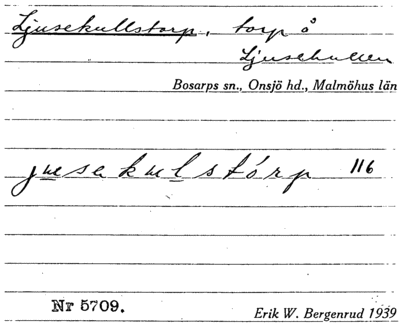 Ljusekullstorp, torp å
Ljusekullen
Bosarps sn., Onsjö hd., Malmöhus län
jusekulstórp 116
Nr 5709.
Erik W. Bergenrud 1939